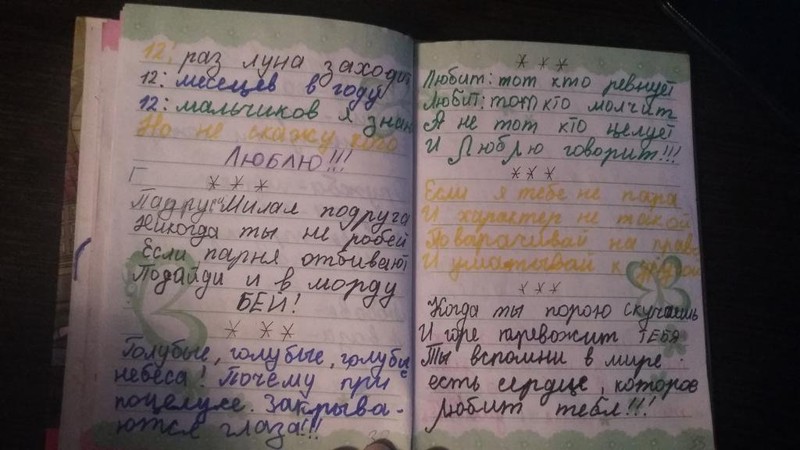 12: раз луна заходит
12: месецев в году
12: мальчиков я знаю
Но не скажу кого
Люблю!!!
* * *
Милая подруга
Никогда ты не робей
Если парня отбивают
Подайди и в морду
БЕЙ!
* * *
Голубые, голубые, голубые
небеса! Почему при
поцелуе. Закрыва-
ются глаза!!!
* * *
Любит: тот кто ревнует
Любит: тот кто молчит
А не тот кто целует
И Люблю говорит!!!
* * *
Если я тебе не пара
И характер не такой
Поварачивай на право
И уматывай к другой
* * *
Когда ты порою скучаешь
И горе тревожит ТЕБЯ
Ты вспомни в мире
есть сердце, которое
любит тебя!!!